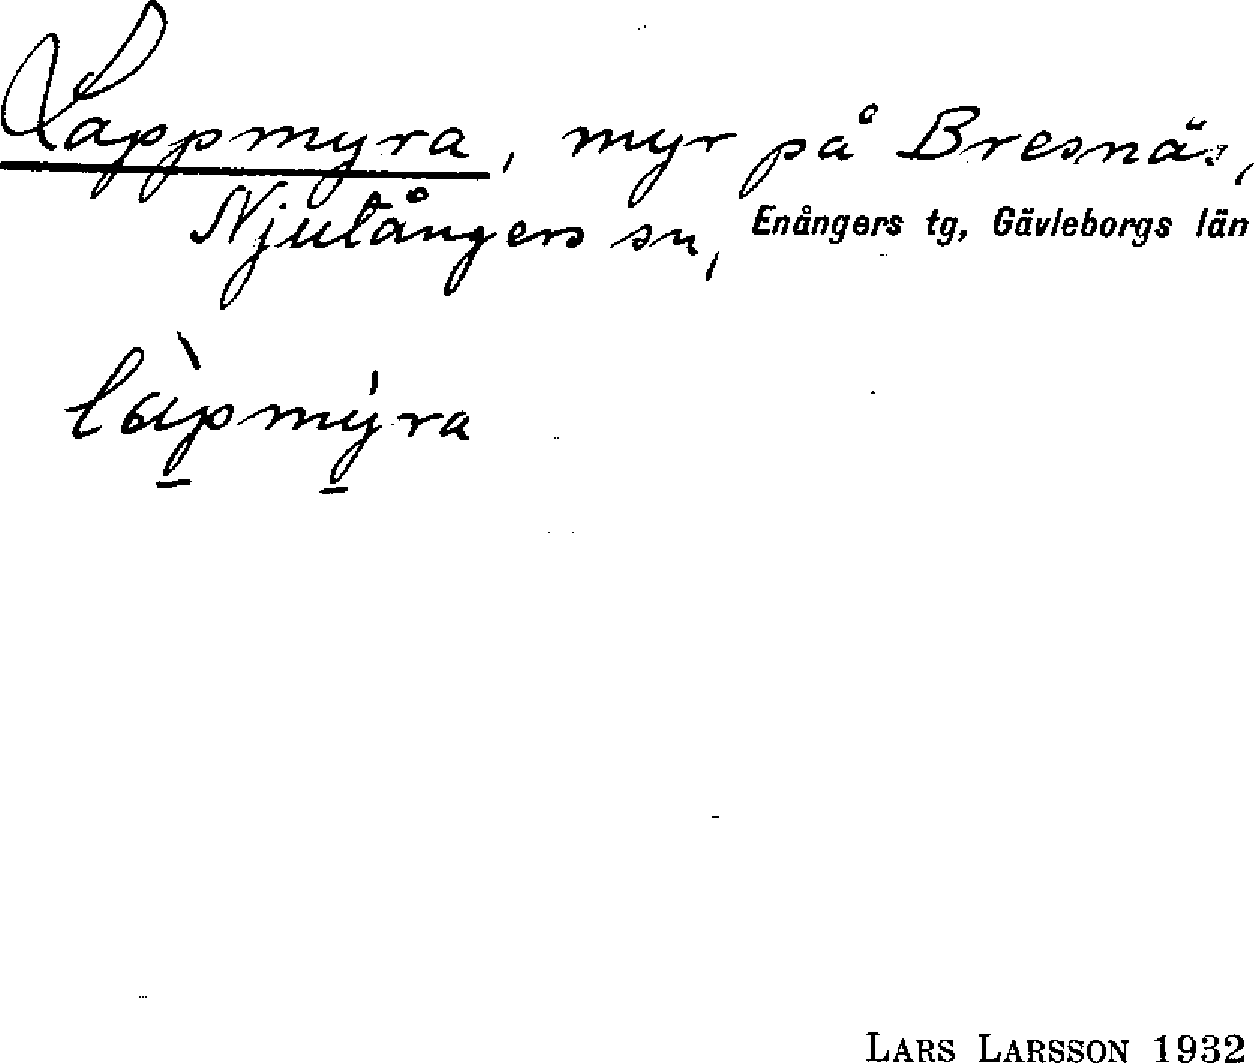 Lappmyra, myr på Bresnäs,
Njutångers sn, Enångers tg, Gävleborgs län
làp̱mý̱ra
LARS LARSSON 1932